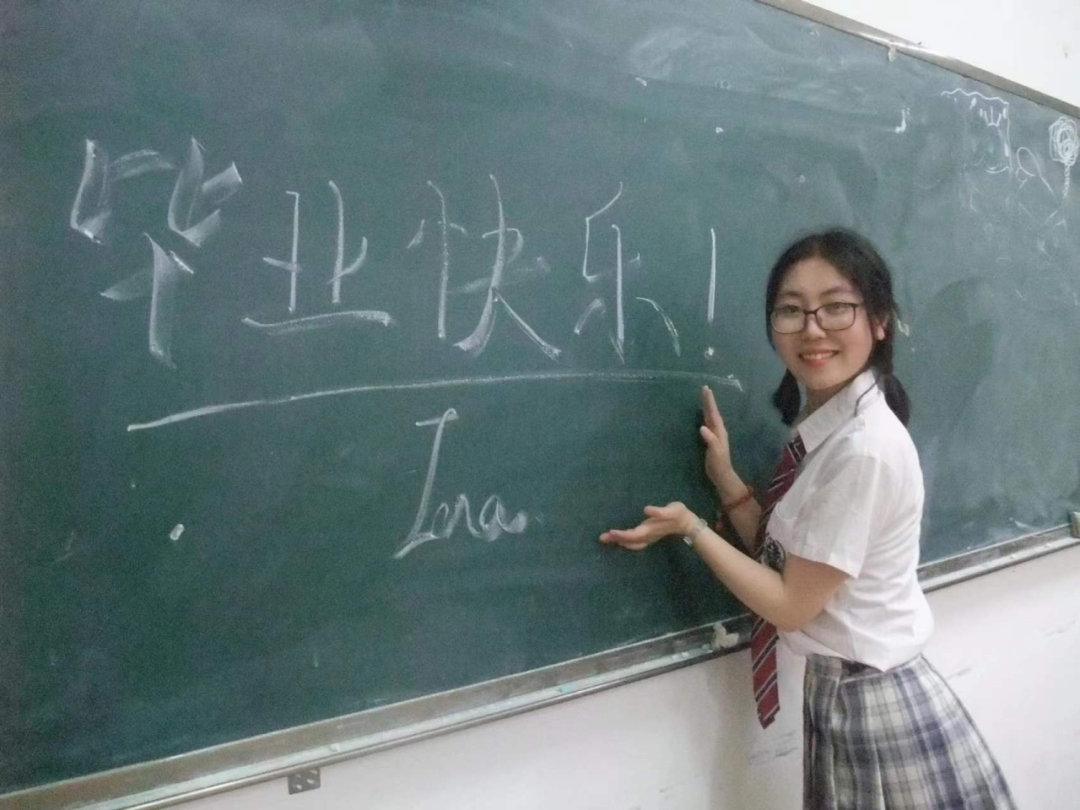 毕业快乐!
Lena